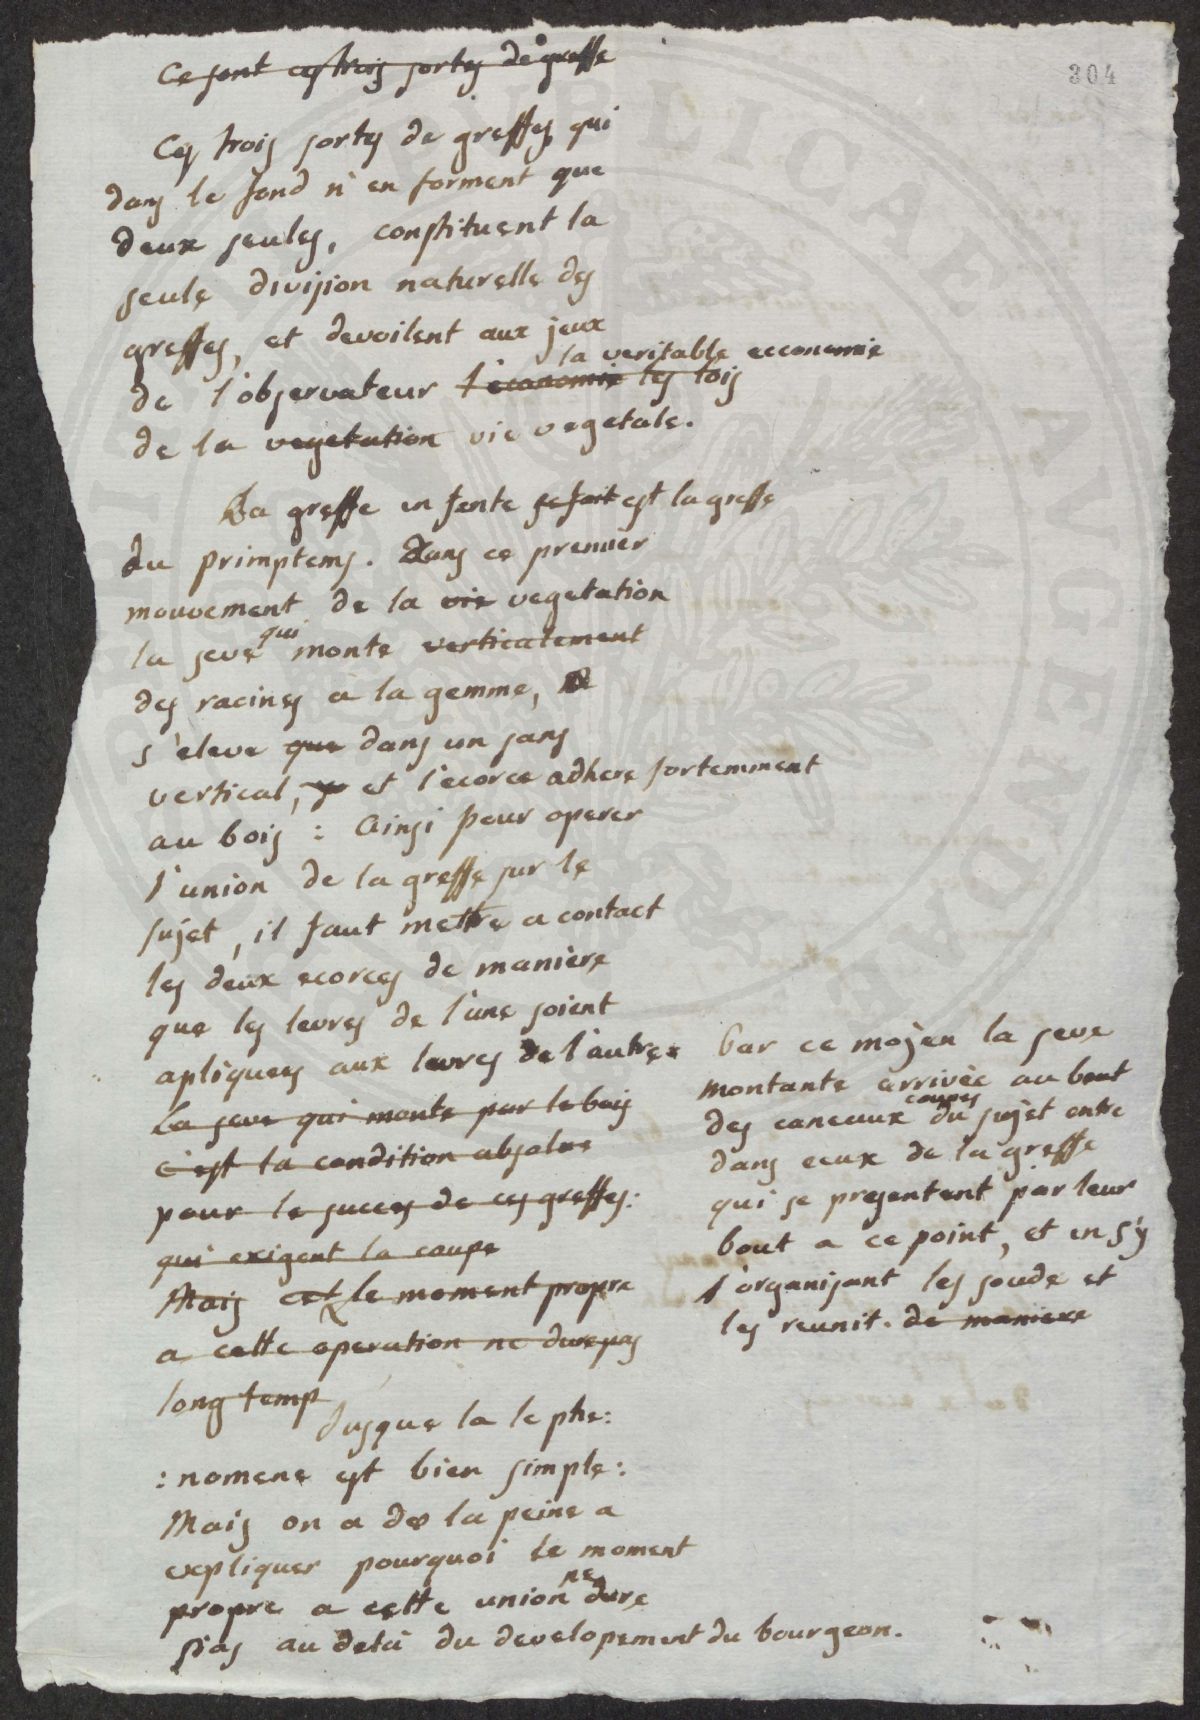 304
Ce sont ces trois sortes de greffe
Ces trois sortes de greffes, qui
dans le fond n'en forment que
deux seules, constituent la
seule division naturelle des
greffes, et devoilent aux jeux
la veritable ecconomie
de l'observateur l'economie les lois
de la vegetation vie vegetale.
La greffe en fente se fait est la greffe
du primptems. Dans ce premier
mouvement de la vie vegetation
la seve qui monte verticalement
des racines a la gemme,
s'eleve que dans un sans
vertical, et l'ecorce adhere fortemment
au bois : Ainsi pour operer
l'union de la greffe sur le
sujet, il faut mettre a contact
les deux ecorces de maniere
que les levres de l'une soient
apliquees aux levres de l'autre.
La seve qui monte par le bois
c'est la condition absolue
pour le succes de ces greffes:
qui exigent la coupe
Mais cet le moment propre
a cette operation ne dure pas
long temp
Jusque la le phe:
:nomene est bien simple:
Mais on a de la peine a
expliquer pourquoi le moment
propre a cette union ne dure
pas au dela du developement du bourgeon.
Par ce mojen la seve
montante arrivée au bout
des caneaux coupes du sujet entre
dans ceux de la greffe
qui se presentent par leur
bout a ce point, et en s'y
l'organisant les soude et
les reunit. de maniere